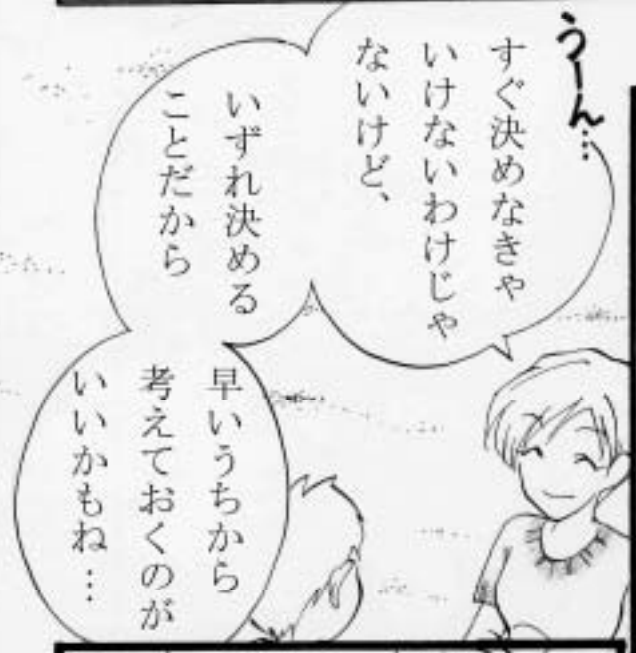 うーん…
すぐ決めなきゃ
いけないわけじゃ
ないけど、
いずれ決める
ことだから
早いうちから
考えておくのが
いいかもね…